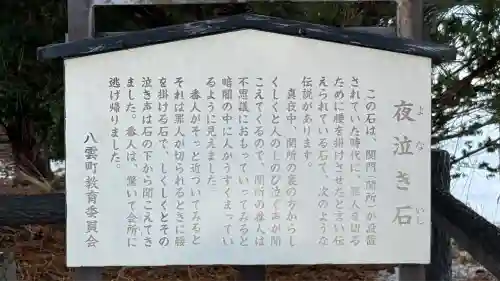 夜泣き石
よなきいし
この石は、関門(関所)が設置
されていた時代に、罪人を切る
ために腰を掛けさせたと言い伝
えられている石で、次のような
伝説があります。
真夜中、関所の裏の方からし
くしくと人のしのび泣く声が聞
こえてくるので、関所の番人は
不思議におもっていってみると
暗闇の中に人がうずくまってい
るように見えました。
番人がそっと近づいてみると
それは罪人が切られるときに腰
を掛ける石で、しくしくとその
泣き声は石の下から聞こえてき
ました。番人は、驚いて会所に
逃げ帰りました。
八雲町教育委員会